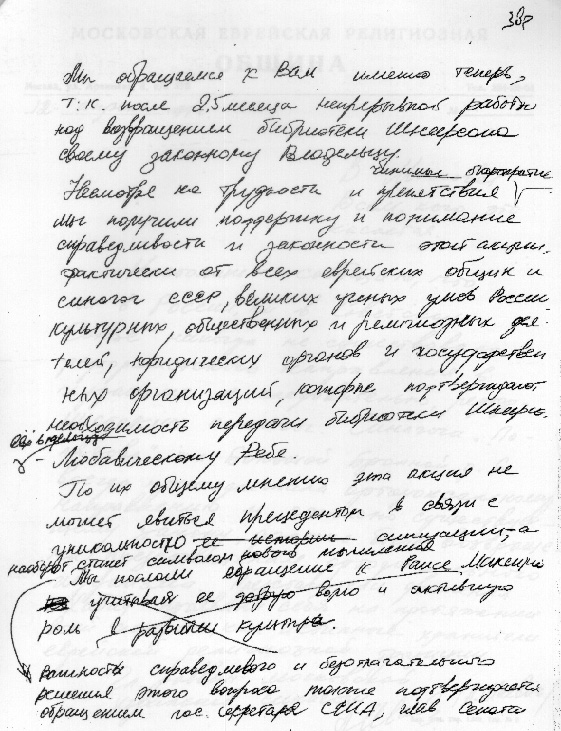 38г
МОСКОВСКАЯ ЕВРЕЙСКАЯ РЕЛИГИОЗНАЯ
ОБЩИНА
Мы обращаемся к Вам именно теперь,
т.к. после 2,5 месяца непрерывной работы
над возвращением библиотеки Шнеерсона
своему законному Владельцу.
Несмотря на трудности и препятствия
мы получили поддержку и понимание
справедливости и законности этой акции.
фактически от всех еврейских общин и
синагог СССР, великих ученых умов России
культурных, общественных и религиозных дея-
телей, юридических органов и государствен
ных организаций, которые подтверждают
необходимость передачи библиотеки Шнеерс.
- Любавическому Ребе.
По их общему мнению эта акция не
может явиться прецедентом в связи с
уникальностью ее истории ситуации, а
наоборот станет символом нового мышления
Мы послали обращение к Раисе Максим
учитывая ее добрую волю и активную
роль в развитии культуры.
важность справедливого и безотлагательного
решения этого вопроса также подтверждается
обращением гос. секретаря США, глав Сената